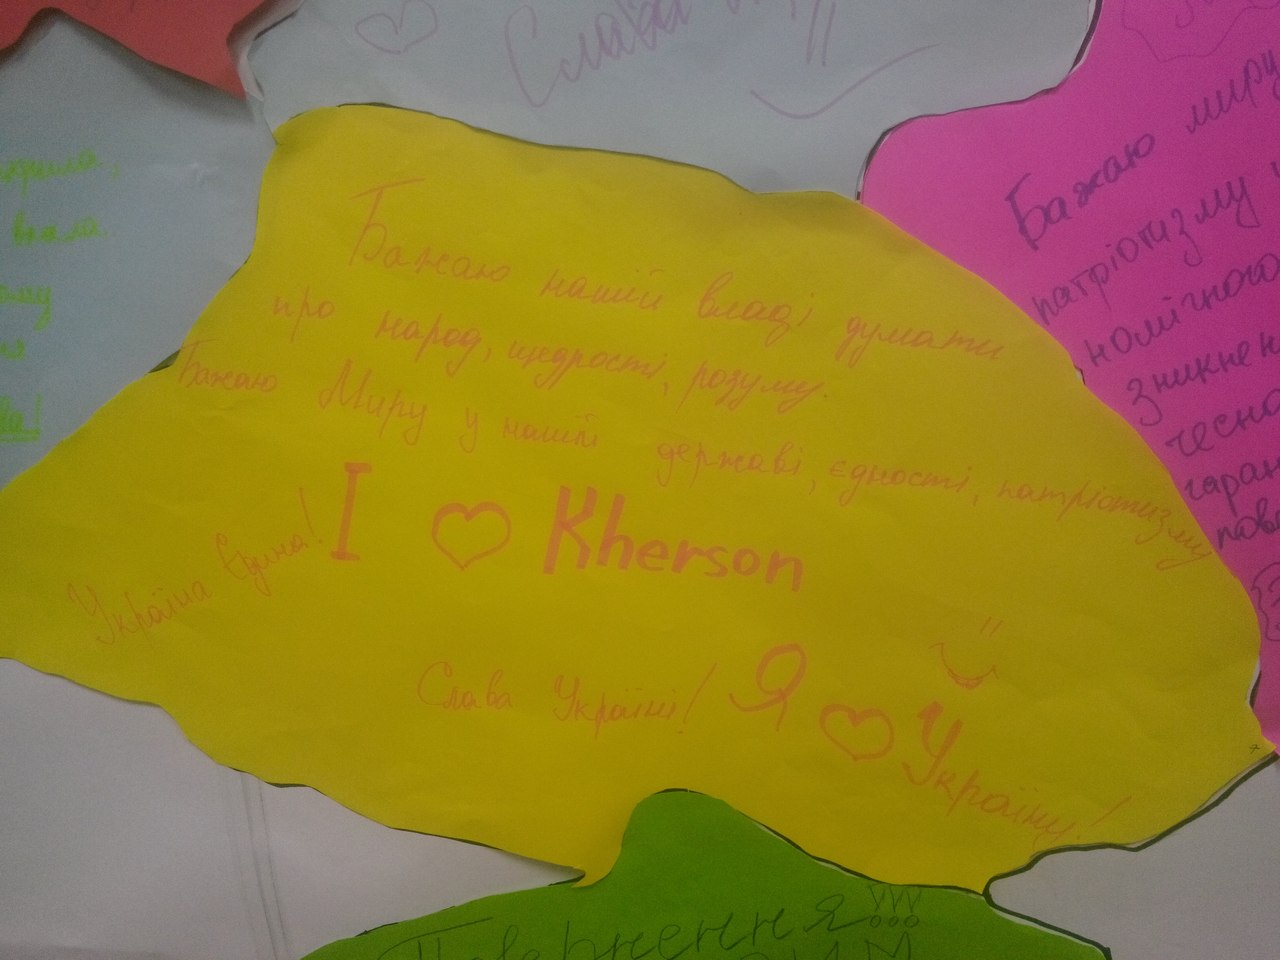 Слава
Бажаю нашій владі думати
про народ, щедрості, розуму.
Бажаю Миру у нашій державі, єдності, патріотизму
I ♡ Kherson
Україна Єдина!
Слава Україні!
Я ♡ Україну!
Бажаю миру
патріотизму
номічного
зникнен
чесно
гаран
пов
Повернення!!!